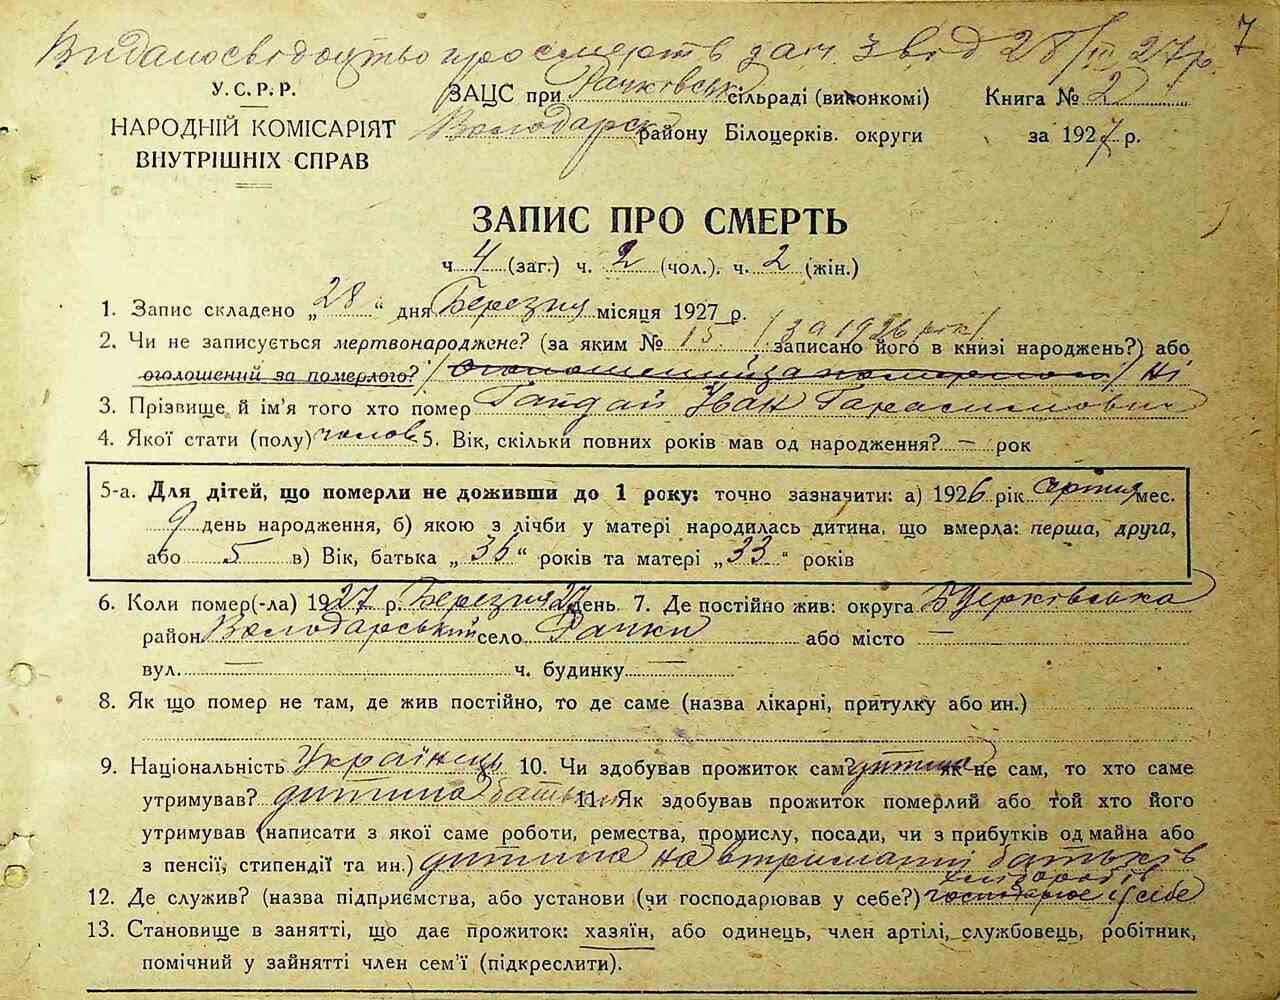 7
Видано свідоцтво про смерть за ч. 3 від 28/III 27 р.
У. С. Р. Р.
НАРОДНІЙ КОМІСАРІЯТ
ВНУТРІШНІХ СПРАВ
ЗАЦС при Рачковськ сільраді (виконкомі)
Володарськ району Білоцерків. округи
Книга № 2
за 1927 р.
ЗАПИС ПРО СМЕРТЬ
ч 4 (заг.) ч. 2 (чол.). ч. 2 (жін.)
1. Запис складено „28“ дня Березня місяця 1927 р.
2. Чи не записується мертвонароджене? (за яким № 15 /за 1926 рік/ записано його в книзі народжень?) або
оголошений за померлого? / оголошений за померлого / Ні
3. Прізвище й ім'я того хто помер Гайдай Іван Гарасимович
4. Якої стати (полу) чолов 5. Вік, скільки повних років мав од народження? — рок
5-а. Для дітей, що померли не доживши до 1 року: точно зазначити: а) 1926 рік мес.
9 день народження, б) якою з лічби у матері народилась дитина, що вмерла: перша, друга,
або 5 в) Вік, батька „36“ років та матері „33“ років
6. Коли помер(-ла) 1927 р. Березня 27 день. 7. Де постійно жив: округа Б Церківська
район Володарський село Рачки або місто —
вул. — ч. будинку —
8. Як що помер не там, де жив постійно, то де саме (назва лікарні, притулку або ин.)
9. Національність Українець 10. Чи здобував прожиток сам? дитина як не сам, то хто саме
утримував? дитина батьки 11. Як здобував прожиток померлий або той хто його
утримував (написати з якої саме роботи, ремества, промислу, посади, чи з прибутків од майна або
з пенсії, стипендії та ин.) дитина на втриманні батьків
хлібороб
12. Де служив? (назва підприємства, або установи (чи господарював у себе?) господарює у себе
13. Становище в занятті, що дає прожиток: хазяїн, або одинець, член артілі, службовець, робітник,
помічний у зайнятті член сем'ї (підкреслити).